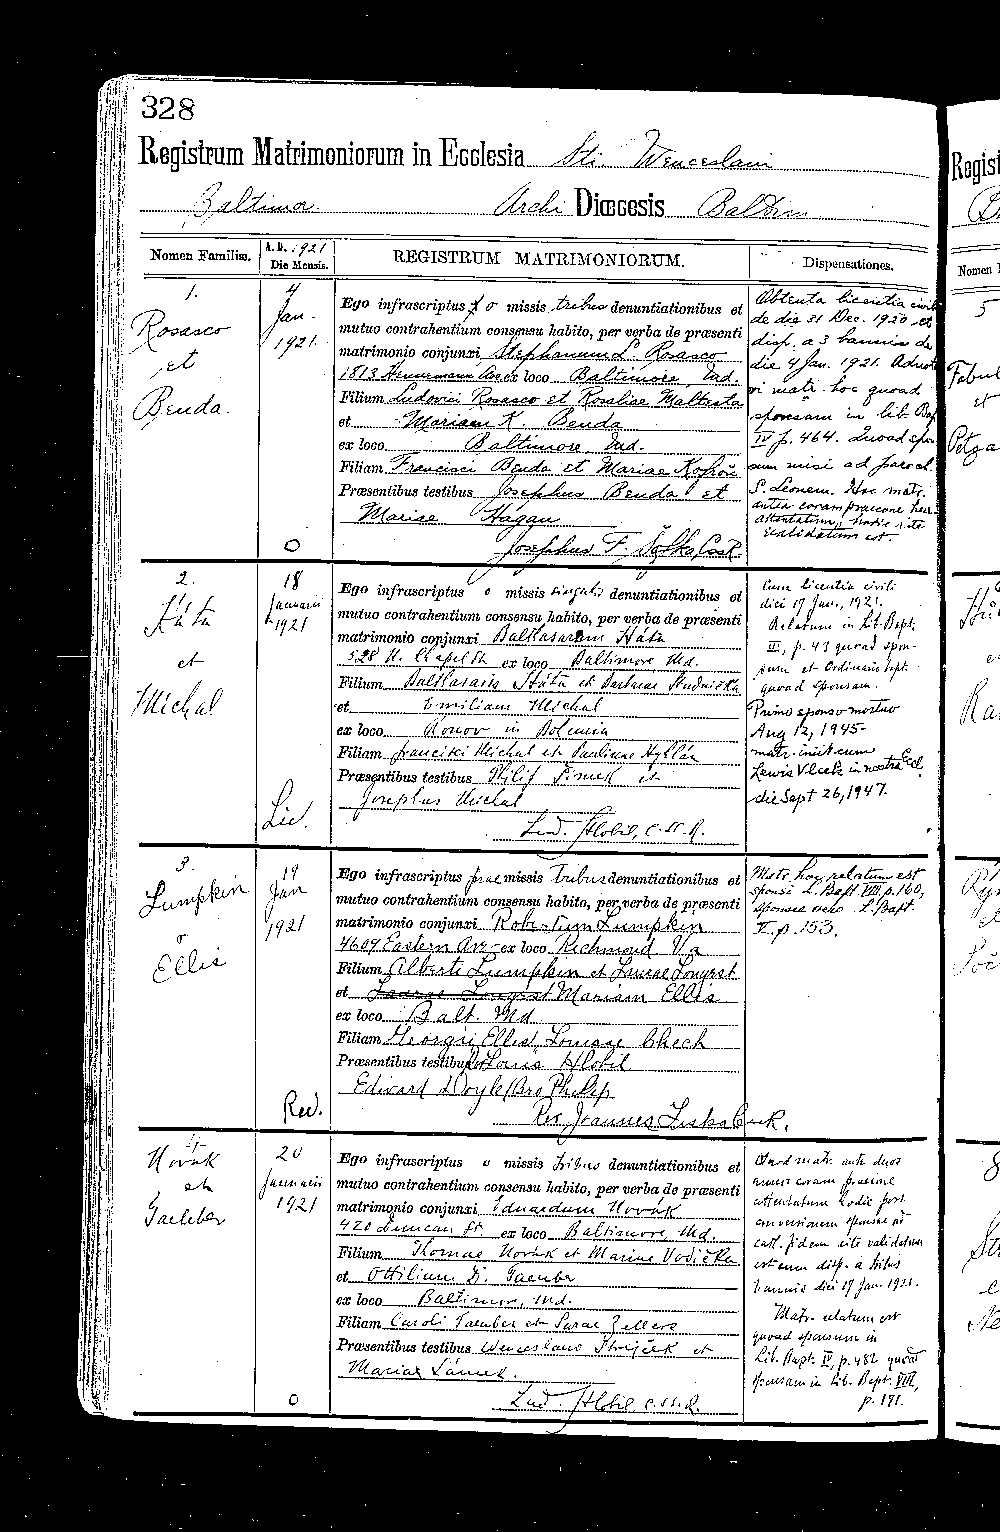 328
Registrum Matrimoniorum in Ecclesia Sti. Wenceslai
Baltimor. Archi Diœcesis Baltim
Nomen Familiæ.
A.D. 1921
Die Mensis.
REGISTRUM MATRIMONIORUM.
Dispensationes.
1.
Rosasco
et
Benda.
4
Jan.
1921
O
Ego infrascriptus o missis tribus denuntiationibus et
mutuo contrahentium consensu habito, per verba de præsenti
matrimonio conjunxi Stephanum L. Rosasco
1813 Hennemann Ave ex loco Baltimore, Md.
Filium Ludovici Rosasco et Rosaliae Maltesta
et Mariam K. Benda
ex loco Baltimore, Md.
Filiam Francisci Benda et Mariae
Præsentibus testibus Josephus Benda et
Mariae Hagan
Josephus F.
Obtenta licentia civili
de die 31 Dec. 1920 et
disp. a 3 bannis de
die 4 Jan. 1921.
matr. hoc quoad
sponsam in lib. Bap
IV p. 464. Quoad spon
sum misi ad paroch.
S. Leonem. Hoc matr.
antea coram praecone her.
attentatum, hodie rite
validatum est.
2.
Háta
et
Michal
18
Januarii
1921
Lic.
Ego infrascriptus o missis singulis denuntiationibus et
mutuo contrahentium consensu habito, per verba de præsenti
matrimonio conjunxi Balthasarem Háta
528 N. Chapel St. ex loco Baltimore Md.
Filium Balthasaris Háta et Barbarae Studnička
et Emiliam Michal
ex loco Ronov in Bohemia
Filiam Francisci Michal et Paulinae
Præsentibus testibus Philip Šimek et
Josephus Michal
Lud. Hlobil, C.SS.R.
Cum licentia civili
diei 17 Jan., 1921.
Relatum in Lib. Bapt.
III, p. 43 quoad spon-
sum et Ordinario
quoad sponsam.
Primo sponso mortuo
Aug 12, 1945-
matr. iniit cum
Lewis Vlcek in nostra Eccl.
die Sept 26, 1947.
3.
Lumpkin
Ellis
19
Jan
1921
Rev.
Ego infrascriptus prae missis tribus denuntiationibus et
mutuo contrahentium consensu habito, per verba de præsenti
matrimonio conjunxi Robertum Lumpkin
4607 Eastern Av. ex loco Richmond Va
Filium Alberti Lumpkin et Louise Longest
et Mariam Ellis
ex loco Balt. Md
Filiam Georgii Ellis et Louisae Chech
Præsentibus testibus Louis Hlobil
Edward Doyle / Bro Philip
Rev. Joannes
Matr. hoc relatum est
sponsi L. Bapt VIII p. 160,
sponsae vero L. Bapt.
V. p. 153.
4
Novák
et
Taeuber
20
Januarii
1921
O
Ego infrascriptus o missis tribus denuntiationibus et
mutuo contrahentium consensu habito, per verba de præsenti
matrimonio conjunxi Eduardum Novák
420 Duncan St. ex loco Baltimore, Md.
Filium Thomae Novák et Mariae Vodička
et Ottiliam D. Taeuber
ex loco Baltimore, Md.
Filiam Caroli Taeuber et Sarae Zellers
Præsentibus testibus Wenceslaus et
Mariae
Lud. Hlobil, C.SS.R.
Quod matr. ante duos
annos coram praecone
attentatum hodie post
conversionem sponsae ad
cath. fidem rite validatum
est cum disp. a tribus
bannis diei 19 Jan. 1921.
Matr. relatum est
quoad sponsum in
Lib. Bapt. IV, p. 482 quoad
sponsam in Lib. Bapt. VIII,
p. 191.